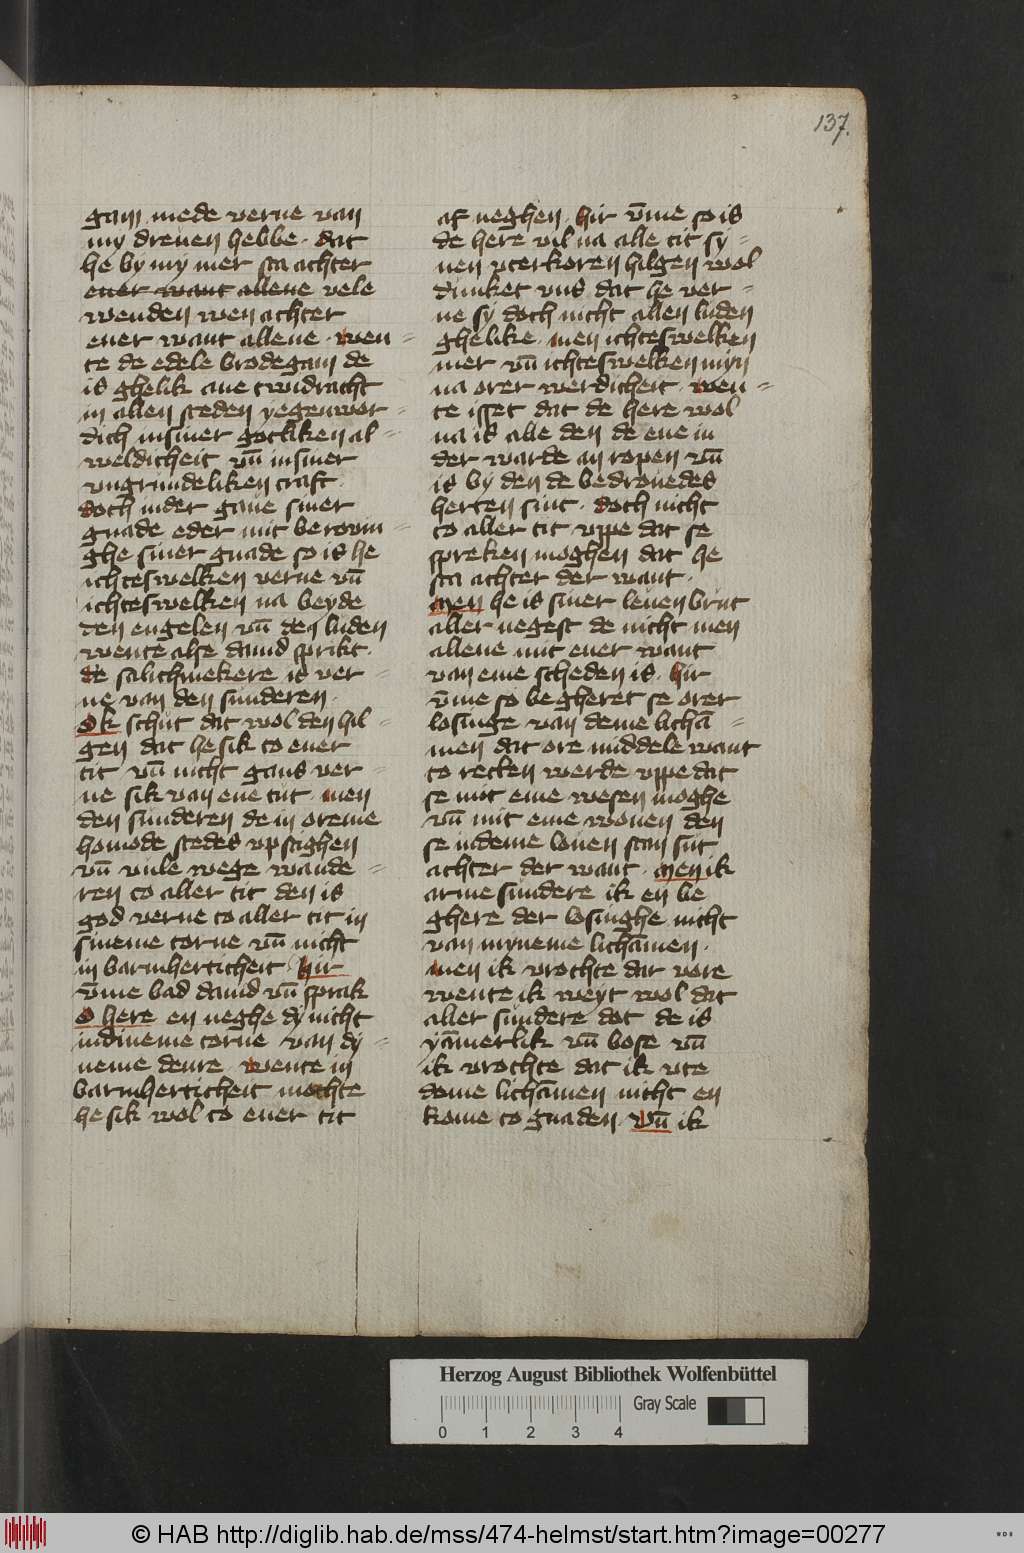 137.
gam mede verne van
my dreuen hebbe · dat
he by my mer sta achter
ener want allene vele
wenden wen achter
ener want allene · wen=
te de edele brodegam de
is ghelik ane twidracht
in allen steden yegenwor=
dich in siner gotliken al=
weldicheit vn̄ in siner
vngrundeliken craft ·
doch in der gaue siner
gnade eder mit berouin=
ghe siner gnade so is he
ichteswelken verne vn̄
ichteswelken na beyde
den engelen vn̄ den luden
wente alse dauid sprikt ·
de salichmekere is ver=
ne van den sunderen ·
Ok schut dat wol den hil=
gen dat he sik to ener
tit vn̄ nicht gans ver=
ne sik van ene tut · men
den sunderen de in oreme
homode stedes vpstighen
vn̄ vule wege wande=
ren to aller tit den is
god verne to aller tit in
sineme torne vn̄ nicht
in barmherticheit · hir
v̄me bad dauid vn̄ sprak
O here en neghe dy nicht
in dineme torne van dy=
neme denre · wente in
barmherticheit mochte
he sik wol to ener tit
af neghen · hir v̄me so is
de here vil na alle tit sy=
nen vterkoren hilgen wol
dunket vns dat he ver=
ne sy doch nicht allen luden
ghelike · men ichteswelken
mer vn̄ ichteswelken myn
na orer werdicheit · wen=
te isset dat de here wol
na is alle den de ene in
der warde an ropen vn̄
is by den de bedrouedes
herten sint · doch nicht
to aller tit vppe dat se
spreken moghen dat he
sta achter der want ·
Men he is siner leuen brut
aller negest de nicht men
allene mit ener want
van eme scheden is · hir
v̄me so begheret se orer
losinge van deme lichā=
men dat ore middele want
to recken werde vppe dat
se mit eme wesen moghe
vn̄ mit eme wonen den
se in deme louen stan sut
achter der want · Men ik
arme sundere ik en be
ghere der losinghe nicht
van myneme lichāmen ·
men ik vrochte dar vore
wente ik weyt wol dat
aller sundere dot de is
yāmerlik vn̄ bose vn̄
ik vrochte dat ik vte
deme lichāmen nicht en
kome to gnaden · Vn̄ ik
Herzog August Bibliothek Wolfenbüttel
Gray Scale
0 1 2 3 4
© HAB http://diglib.hab.de/mss/474-helmst/start.htm?image=00277
WDB